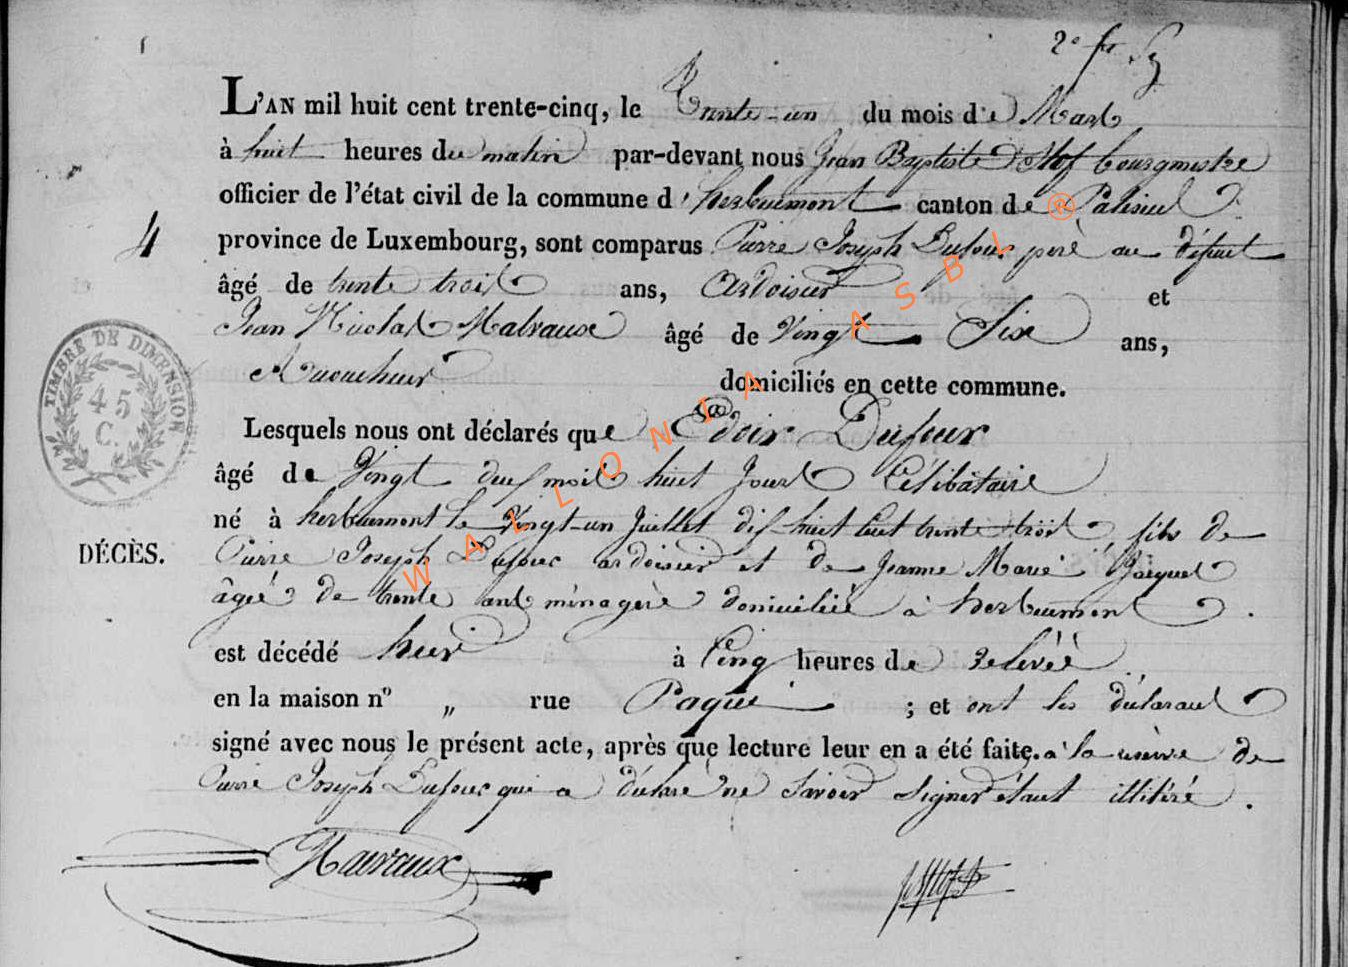 2e
L'AN mil huit cent trente-cinq, le Trente-un du mois de Mars
à huit heures du matin par-devant nous Jean Baptiste bourgmestre
officier de l'état civil de la commune d'herbeumont canton de Paliseul
4
province de Luxembourg, sont comparus Pierre Joseph Dufour père au défunt
âgé de trente trois ans, Ardoisier et
Jean Nicolas Malvaux âgé de Vingt Six ans,
domiciliés en cette commune.
TIMBRE DE DIMENSION
45
C.
Lesquels nous ont déclarés que Edoir Dufour
âgé de Vingt mois huit Jours Célibataire
né à herbeumont le Vingt-un Juillet dix-huit Cent trente trois, fils de
DÉCÈS.
Pierre Joseph Dufour ardoisier et de Jeanne Marie Jacquet
âgée de trente ans ménagère domiciliée à herbeumont.
est décédé hier à Cinq heures de relevée
en la maison n° „ rue Paquis ; et ont les déclarans
signé avec nous le présent acte, après que lecture leur en a été faite. à la réserve de
Pierre Joseph Dufour qui a déclaré ne Savoir Signer étant illitéré.
Malvaux
WALLONIA ASBL ®